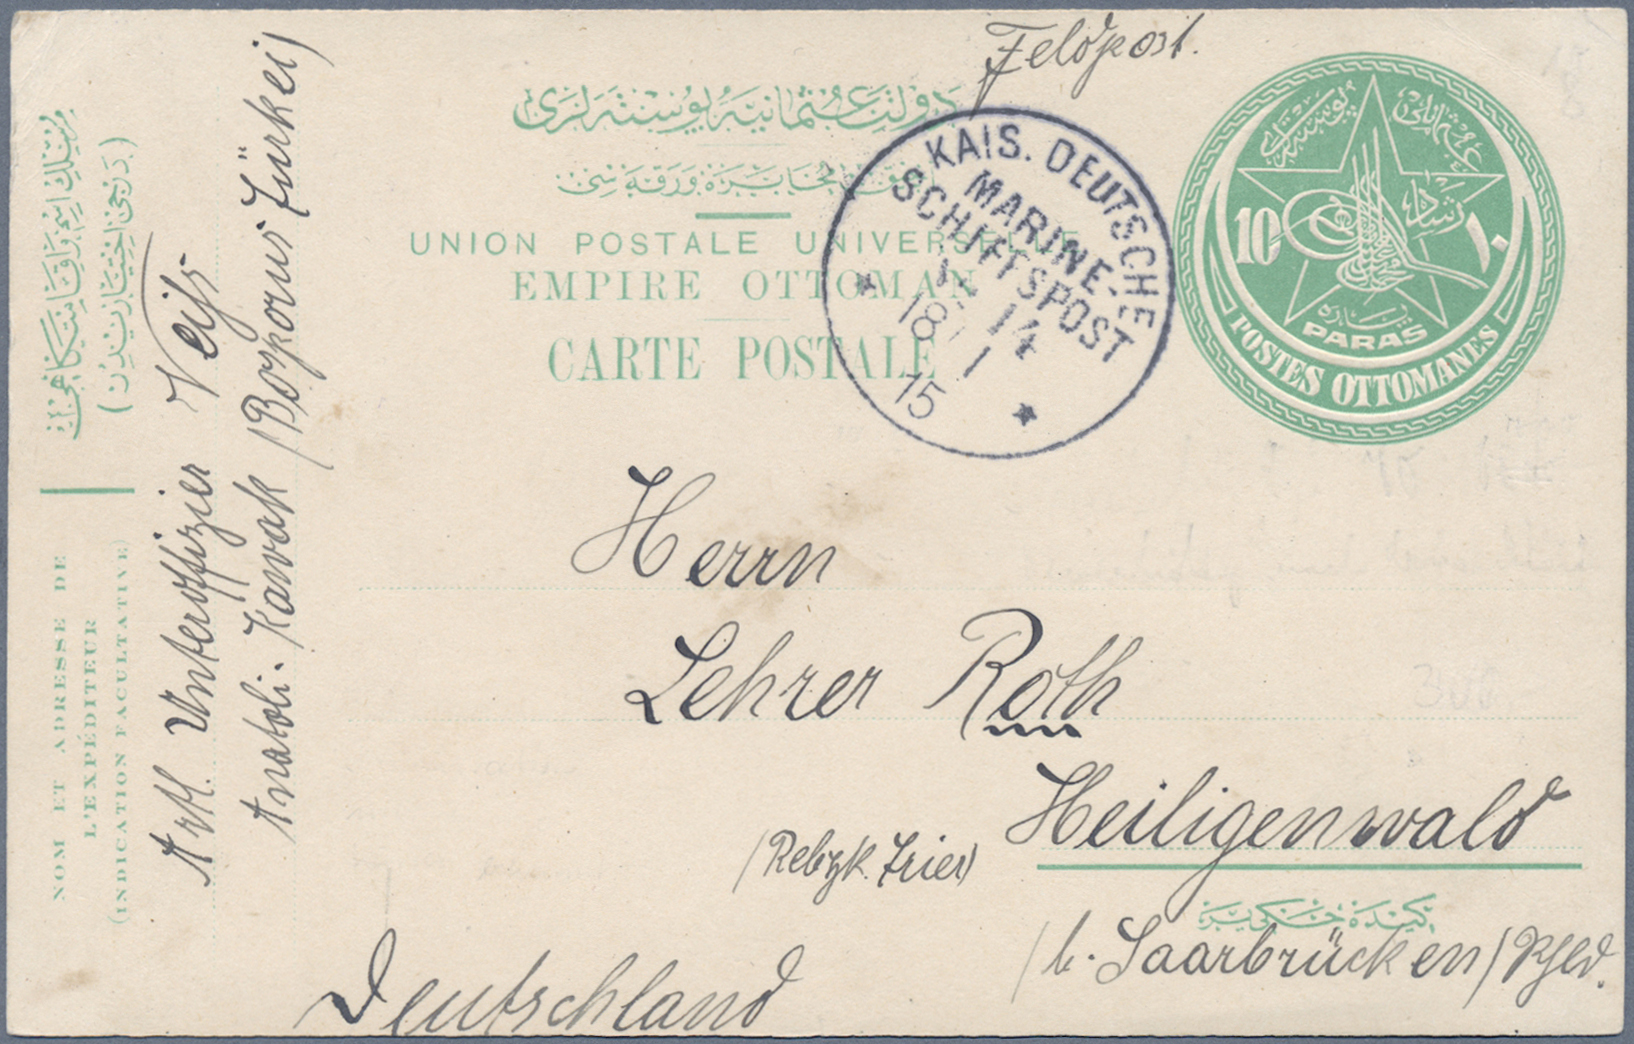 Feldpost.
دولت عثمانیه پوسته لری
UNION POSTALE UNIVERSELLE
EMPIRE OTTOMAN
CARTE POSTALE
KAIS. DEUTSCHE
MARINE-
SCHIFFSPOST
No 14
18 1
15
10
۱۰
رشاد
پاره
PARAS
POSTES OTTOMANES
Herrn
Lehrer Roth
Heiligenwald
(Rebzk. Trier)
(b. Saarbrücken) Rhld.
Deutschland
NOM ET ADRESSE DE
L'EXPÉDITEUR
(INDICATION FACULTATIVE)
Artl. Unteroffizier Veiß
Anatoli. Kawak (Bosporus Türkei)